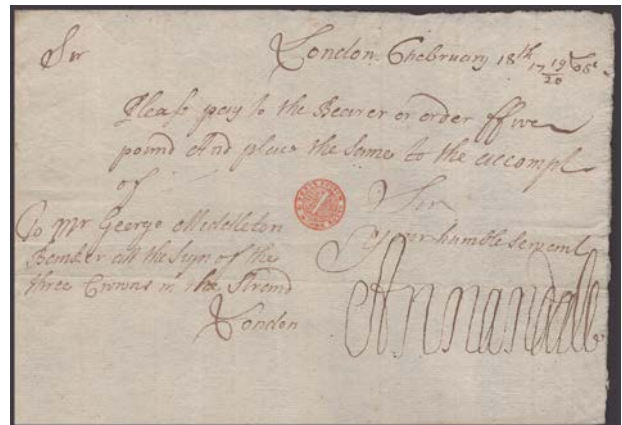 Sir London February 18th 17 19/20
Please pay to the Bearer or order ffive
pound And place the same to the accompt
of
Sir
Your humble Servant
To Mr George Middleton
Banker att the Syn of the
three Crowns in the Strand
London
Annandale